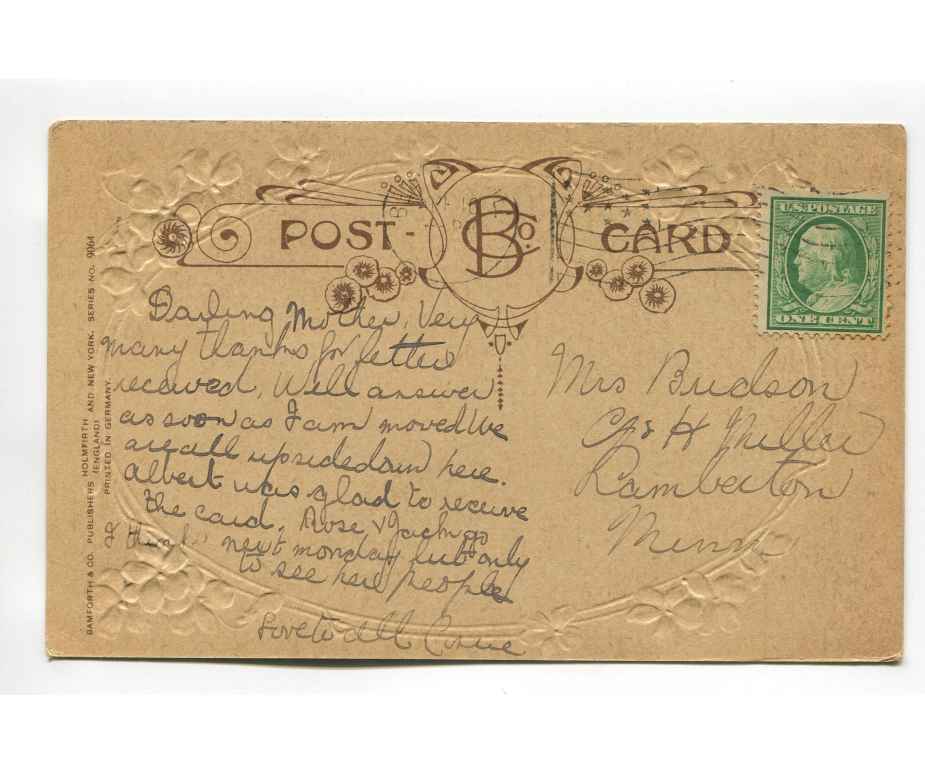 POST
B Co.
CARD
U.S. POSTAGE
ONE CENT
BAMFORTH & CO. PUBLISHERS HOLMFIRTH AND NEW YORK. SERIES NO. 9064
(ENGLAND)
PRINTED IN GERMANY.
Darling Mother, Very
many thanks for letter
received, Will answer
as soon as I am moved We
are all upsidedown here.
Albert was glad to receive
the card. Rose & Jack go
I think next monday but only
to see her people
Love to all
Mrs Budson
H Miller
Lamberton
Minn